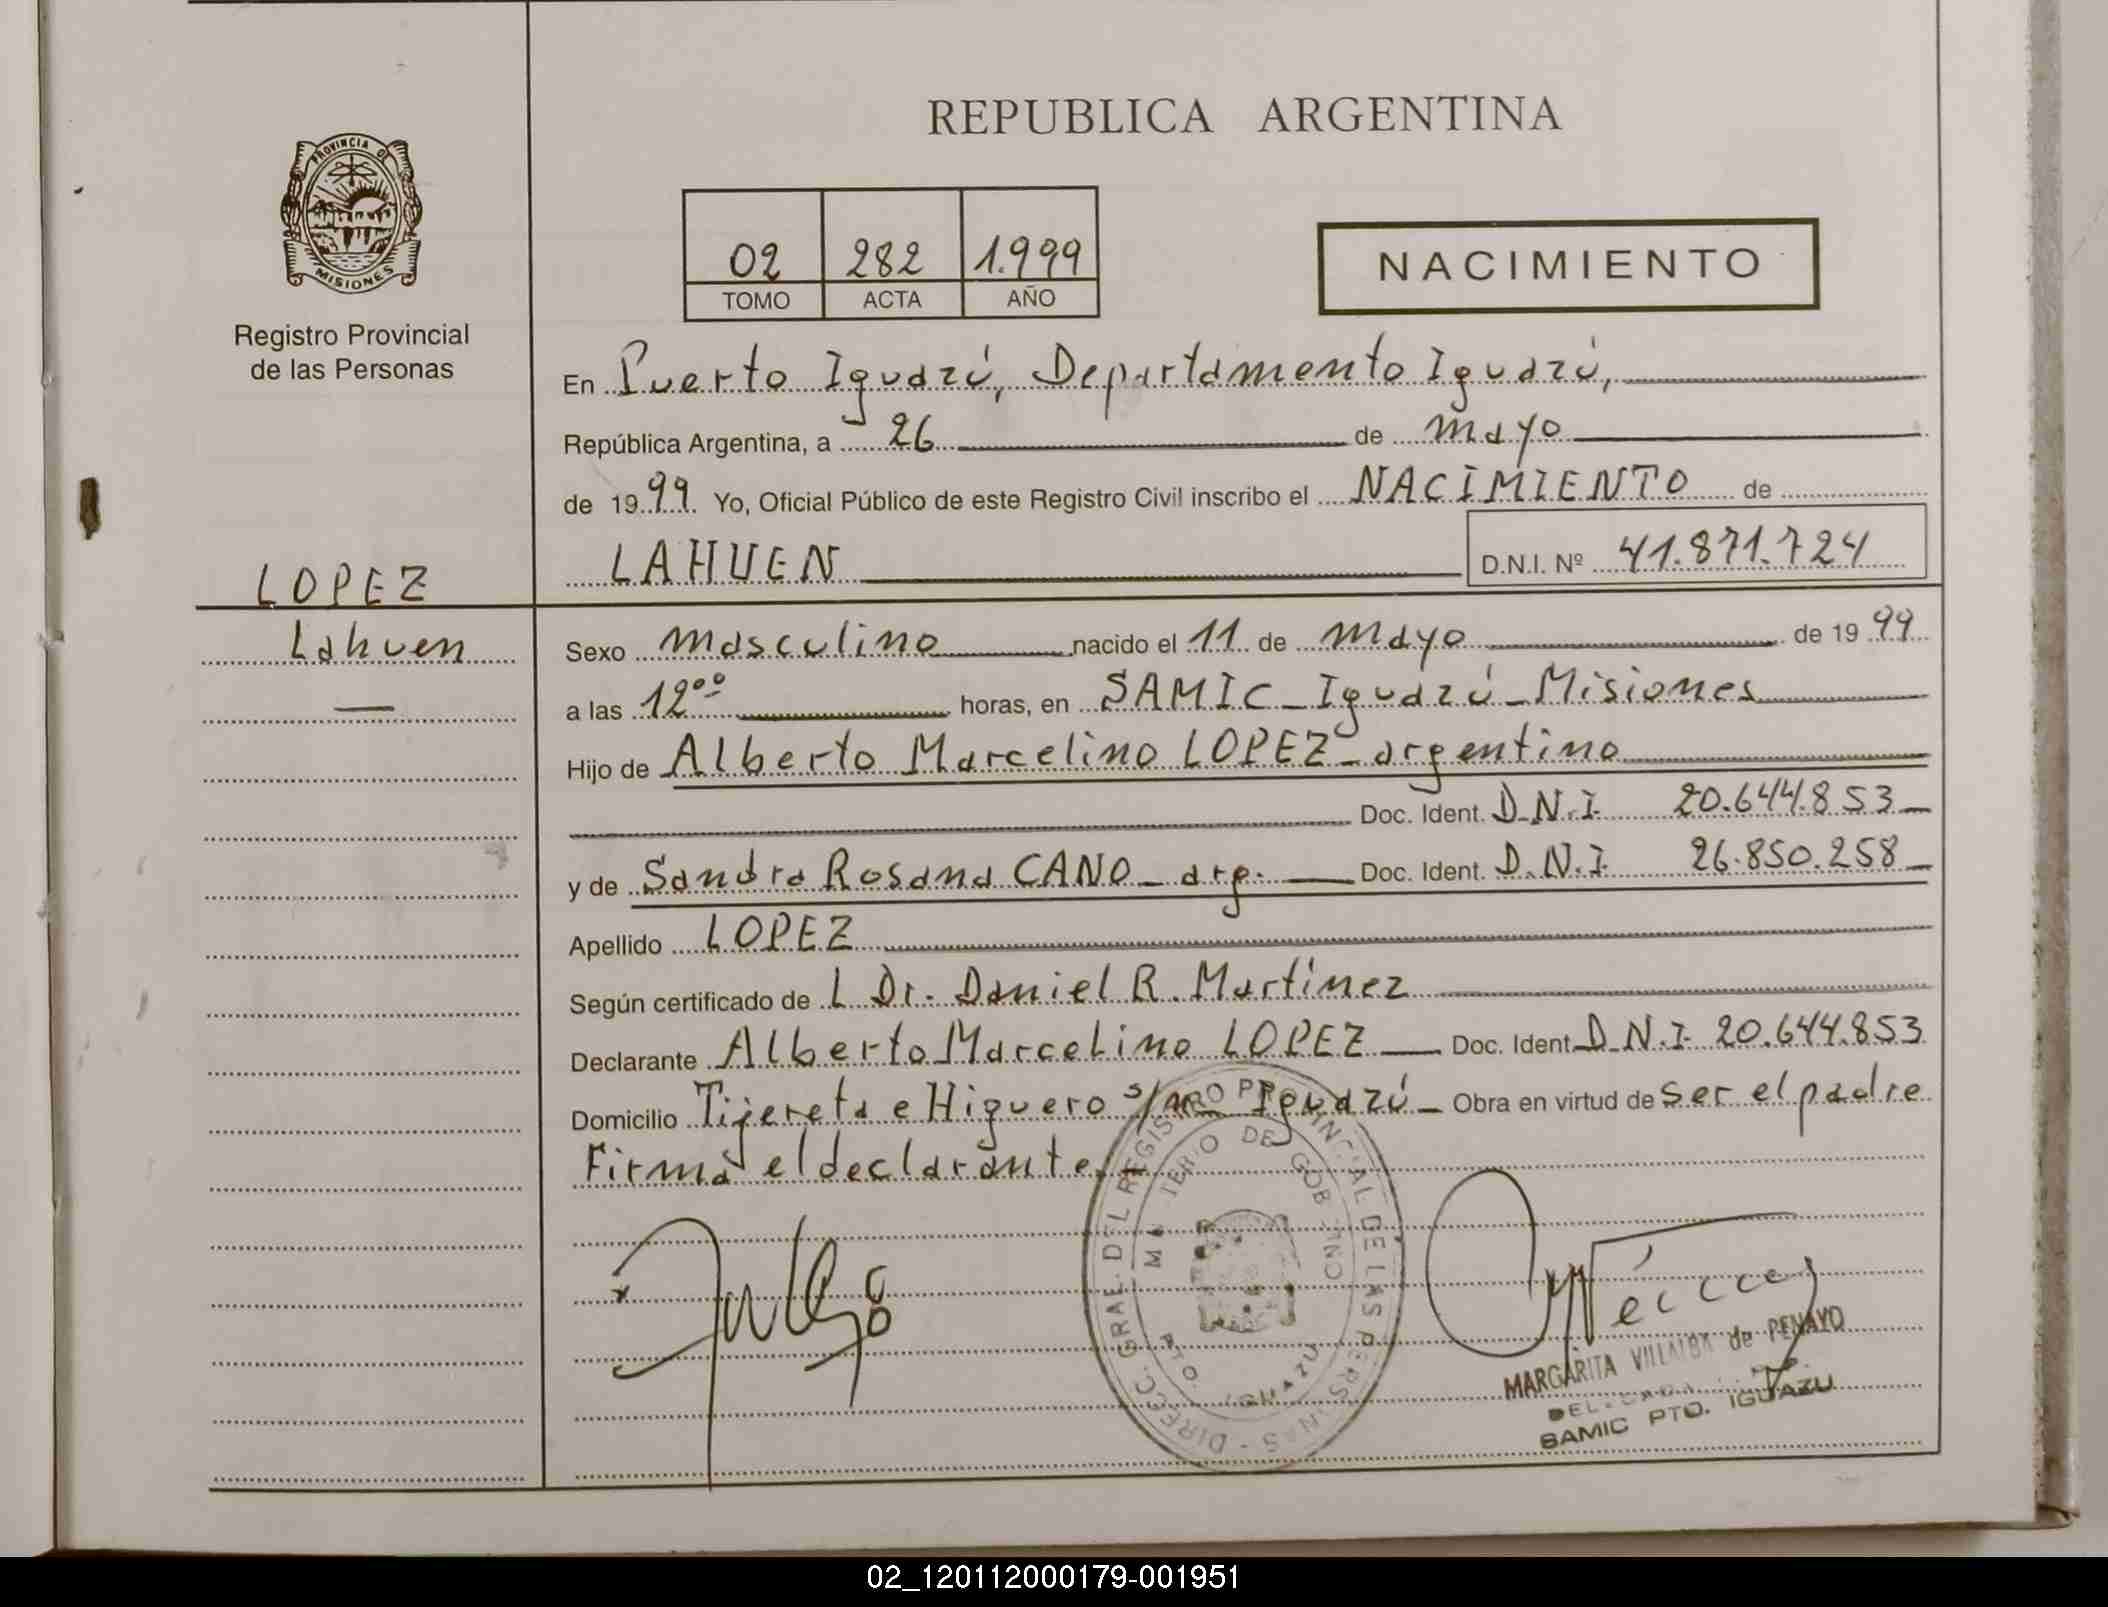 REPUBLICA ARGENTINA
PROVINCIA DE
MISIONES
Registro Provincial
de las Personas
02 282 1.999
TOMO ACTA AÑO
NACIMIENTO
En Puerto Iguazú, Departamento Iguazú,
República Argentina, a 26 de mayo
de 1999. Yo, Oficial Público de este Registro Civil inscribo el NACIMIENTO de
LAHUEN D.N.I. Nº 41.871.724
LOPEZ
Lahuen
Sexo masculino nacido el 11 de mayo de 1999
a las 12⁰⁰ horas, en SAMIC - Iguazú - Misiones
Hijo de Alberto Marcelino LOPEZ - argentino
Doc. Ident. D.N.I. 20.644.853
y de Sandra Rosana CANO - arg. Doc. Ident. D.N.I. 26.850.258
Apellido LOPEZ
Según certificado de L Dr. Daniel R. Martinez
Declarante Alberto Marcelino LOPEZ Doc. Ident. D.N.I. 20.644.853
Domicilio Tijereta e Higuero s/n Iguazú - Obra en virtud de ser el padre
Firma el declarante.
DIREC. GRAL. DEL REGISTRO PROVINCIAL DE LAS PERSONAS
MINISTERIO DE GOBIERNO
PTO. IGUAZU
MARGARITA VILLALBA de PENAYO
DELEGADA
SAMIC PTO. IGUAZU
02_120112000179-001951